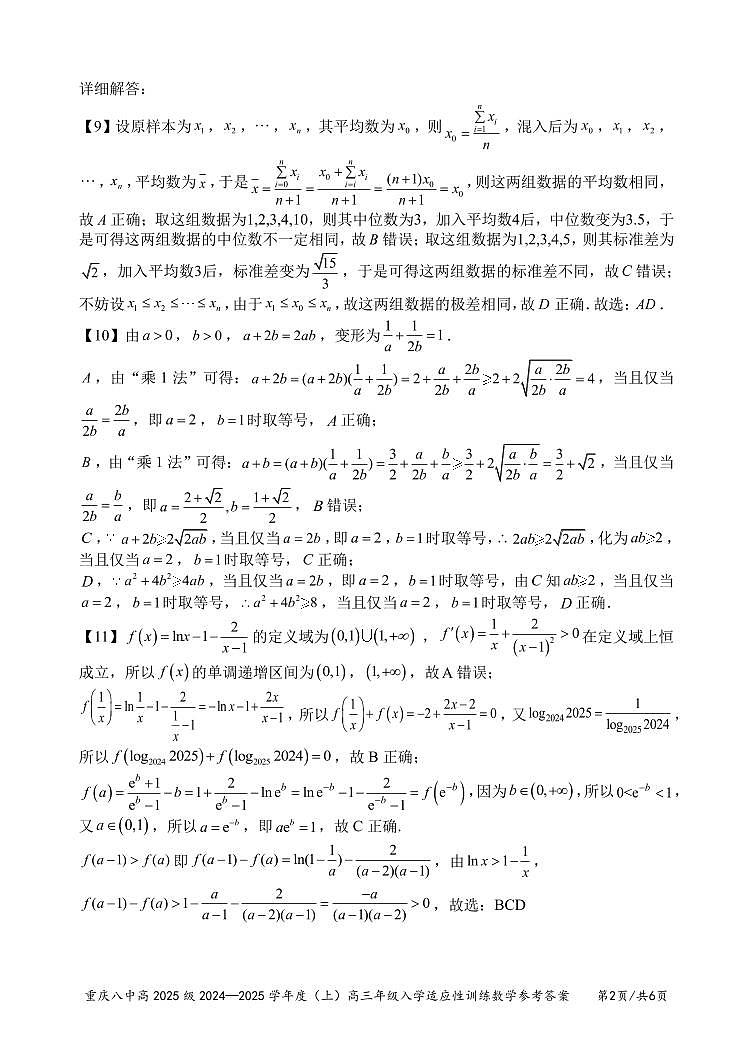 详细解答:
【9】设原样本为 x₁ , x₂ , ⋯ , xₙ ,其平均数为 x₀ ,则 x₀ = (∑_{i=1}^{n} xᵢ)/n ,混入后为 x₀ , x₁ , x₂ ,
⋯ , xₙ ,平均数为 x̄ ,于是 x̄ = (∑_{i=0}^{n} xᵢ)/(n+1) = (x₀ + ∑_{i=i}^{n} xᵢ)/(n+1) = ((n+1)x₀)/(n+1) = x₀ ,则这两组数据的平均数相同,
故 A 正确;取这组数据为1,2,3,4,10,则其中位数为3,加入平均数4后,中位数变为3.5,于
是可得这两组数据的中位数不一定相同,故 B 错误;取这组数据为1,2,3,4,5,则其标准差为
√2 ,加入平均数3后,标准差变为 √15/3 ,于是可得这两组数据的标准差不同,故 C 错误;
不妨设 x₁ ≤ x₂ ≤ ⋯ ≤ xₙ ,由于 x₁ ≤ x₀ ≤ xₙ ,故这两组数据的极差相同,故 D 正确.故选:AD .
【10】由 a > 0 , b > 0 , a + 2b = 2ab ,变形为 1/a + 1/(2b) = 1 .
A ,由“乘 1 法”可得: a + 2b = (a + 2b)(1/a + 1/(2b)) = 2 + a/(2b) + 2b/a ⩾ 2 + 2√(a/(2b) · 2b/a) = 4 ,当且仅当
a/(2b) = 2b/a ,即 a = 2 , b = 1 时取等号, A 正确;
B ,由“乘 1 法”可得: a + b = (a + b)(1/a + 1/(2b)) = 3/2 + a/(2b) + b/a ⩾ 3/2 + 2√(a/(2b) · b/a) = 3/2 + √2 ,当且仅当
a/(2b) = b/a ,即 a = (2+√2)/2 , b = (1+√2)/2 , B 错误;
C ,∵ a + 2b ⩾ 2√(2ab) ,当且仅当 a = 2b ,即 a = 2 , b = 1 时取等号,∴ 2ab ⩾ 2√(2ab) ,化为 ab ⩾ 2 ,
当且仅当 a = 2 , b = 1 时取等号, C 正确;
D ,∵ a² + 4b² ⩾ 4ab ,当且仅当 a = 2b ,即 a = 2 , b = 1 时取等号,由 C 知 ab ⩾ 2 ,当且仅当
a = 2 , b = 1 时取等号,∴ a² + 4b² ⩾ 8 ,当且仅当 a = 2 , b = 1 时取等号, D 正确.
【11】 f(x) = lnx − 1 − 2/(x−1) 的定义域为 (0,1)∪(1,+∞) , f′(x) = 1/x + 2/(x−1)² > 0 在定义域上恒
成立,所以 f(x) 的单调递增区间为 (0,1) , (1,+∞) ,故 A 错误;
f(1/x) = ln 1/x − 1 − 2/(1/x − 1) = −ln x − 1 + 2x/(x−1) ,所以 f(1/x) + f(x) = −2 + (2x−2)/(x−1) = 0 ,又 log₂₀₂₄ 2025 = 1/(log₂₀₂₅ 2024) ,
所以 f(log₂₀₂₄ 2025) + f(log₂₀₂₅ 2024) = 0 ,故 B 正确;
f(a) = (eᵇ+1)/(eᵇ−1) − b = 1 + 2/(eᵇ−1) − ln eᵇ = ln e⁻ᵇ − 1 − 2/(e⁻ᵇ−1) = f(e⁻ᵇ) ,因为 b ∈ (0,+∞) ,所以 0<e⁻ᵇ < 1 ,
又 a ∈ (0,1) ,所以 a = e⁻ᵇ ,即 aeᵇ = 1 ,故 C 正确.
f(a−1) > f(a) 即 f(a−1) − f(a) = ln(1 − 1/a) − 2/((a−2)(a−1)) ,由 ln x > 1 − 1/x ,
f(a−1) − f(a) > 1 − a/(a−1) − 2/((a−2)(a−1)) = −a/((a−1)(a−2)) > 0 ,故选:BCD
重庆八中高 2025 级 2024—2025 学年度(上)高三年级入学适应性训练数学参考答案 第2页/共6页